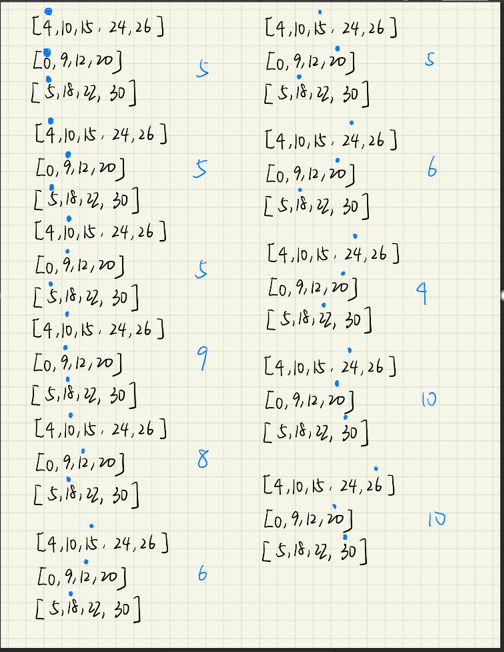 [4,10,15, 24,26]
[0,9,12,20]
5
[5,18,22, 30]
[4,10,15, 24,26]
[0,9,12,20]
5
[5,18,22, 30]
[4,10,15, 24,26]
[0,9,12,20]
5
[5,18,22, 30]
[4,10,15, 24,26]
[0,9,12,20]
9
[5,18,22, 30]
[4,10,15, 24,26]
[0,9,12,20]
8
[5,18,22, 30]
[4,10,15, 24,26]
[0,9,12,20]
6
[5,18,22, 30]
[4,10,15, 24,26]
[0,9,12,20]
5
[5,18,22, 30]
[4,10,15, 24,26]
[0,9,12,20]
6
[5,18,22, 30]
[4,10,15, 24,26]
[0,9,12,20]
4
[5,18,22, 30]
[4,10,15, 24,26]
[0,9,12,20]
10
[5,18,22, 30]
[4,10,15, 24,26]
[0,9,12,20]
10
[5,18,22, 30]